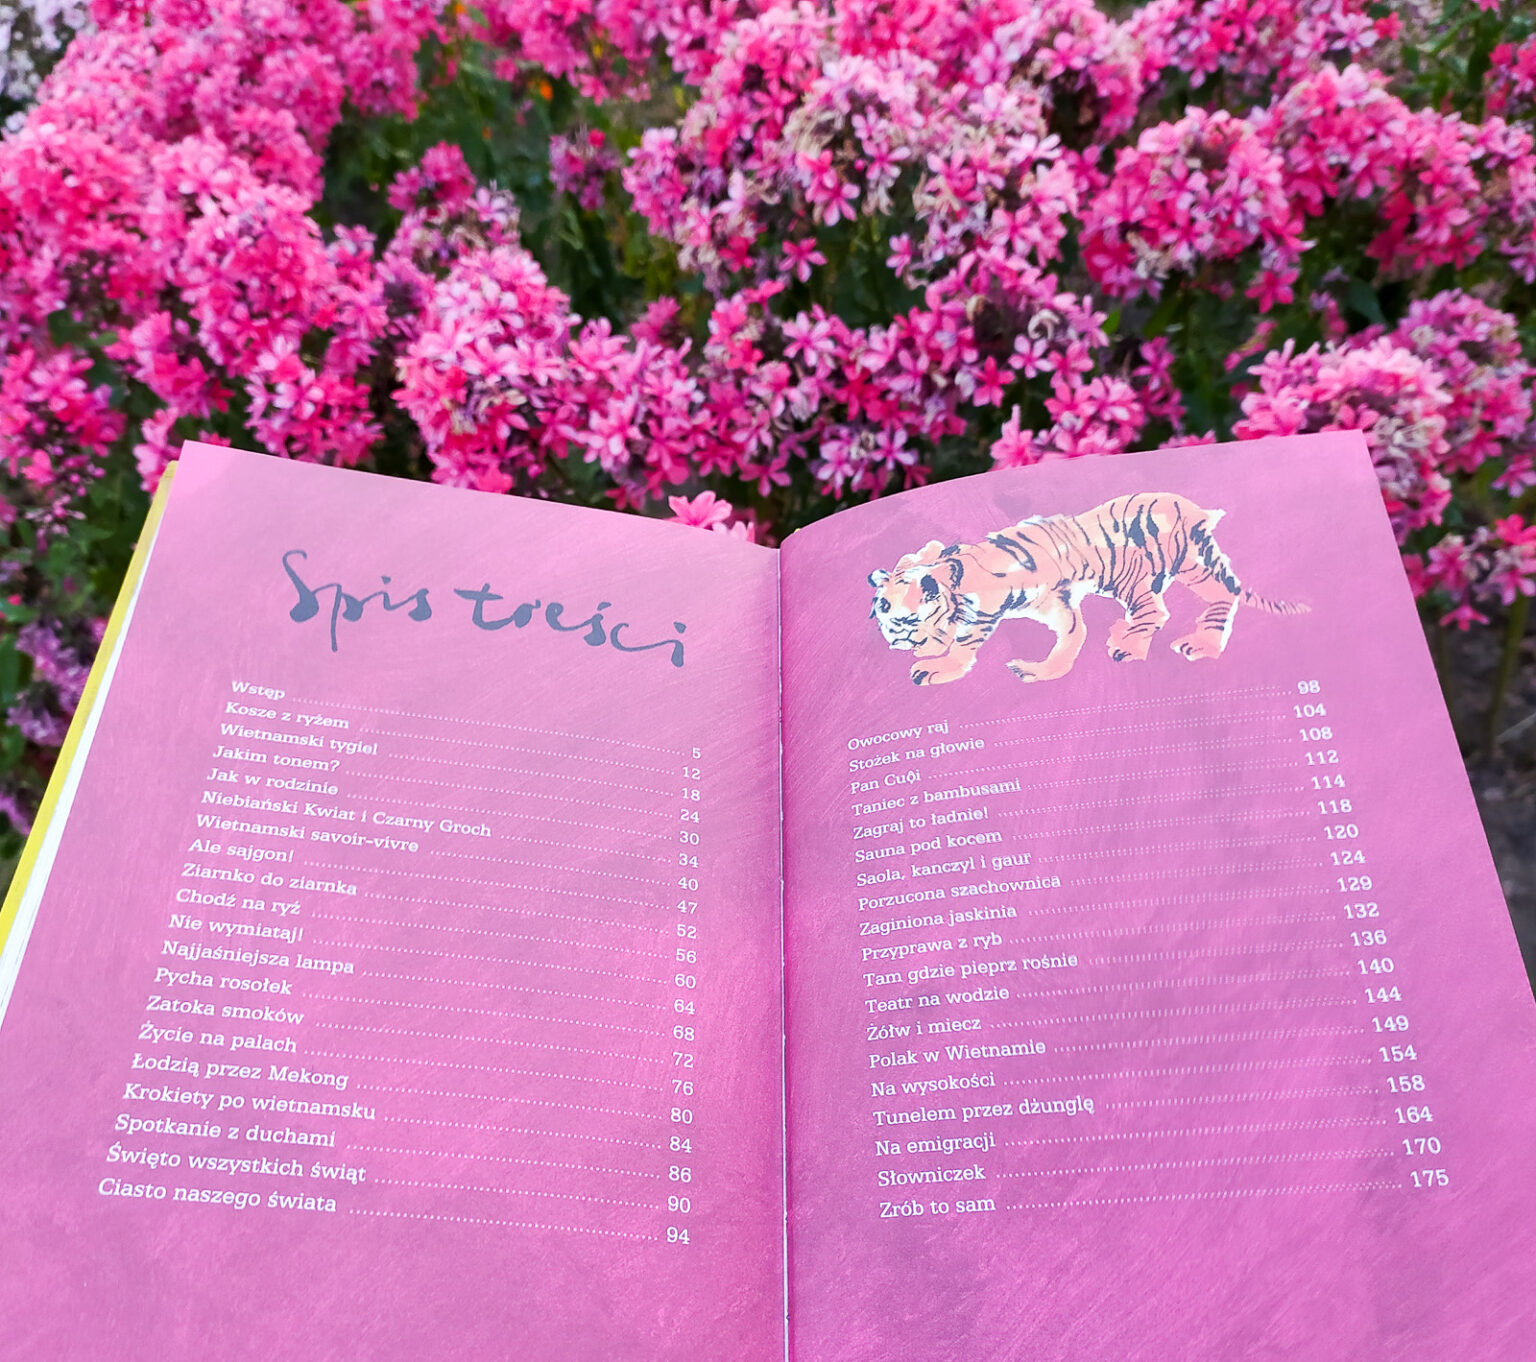 Spis treści
Wstęp ........ 5
Kosze z ryżem ........ 12
Wietnamski tygiel ........ 18
Jakim tonem? ........ 24
Jak w rodzinie ........ 30
Niebiański Kwiat i Czarny Groch ........ 34
Wietnamski savoir-vivre ........ 40
Ale sajgon! ........ 47
Ziarnko do ziarnka ........ 52
Chodź na ryż ........ 56
Nie wymiataj! ........ 60
Najjaśniejsza lampa ........ 64
Pycha rosołek ........ 68
Zatoka smoków ........ 72
Życie na palach ........ 76
Łodzią przez Mekong ........ 80
Krokiety po wietnamsku ........ 84
Spotkanie z duchami ........ 86
Święto wszystkich świąt ........ 90
Ciasto naszego świata ........ 94
Owocowy raj ........ 98
Stożek na głowie ........ 104
Pan Cuội ........ 108
Taniec z bambusami ........ 112
Zagraj to ładnie! ........ 114
Sauna pod kocem ........ 118
Saola, kanczyl i gaur ........ 120
Porzucona szachownica ........ 124
Zaginiona jaskinia ........ 129
Przyprawa z ryb ........ 132
Tam gdzie pieprz rośnie ........ 136
Teatr na wodzie ........ 140
Żółw i miecz ........ 144
Polak w Wietnamie ........ 149
Na wysokości ........ 154
Tunelem przez dżunglę ........ 158
Na emigracji ........ 164
Słowniczek ........ 170
Zrób to sam ........ 175